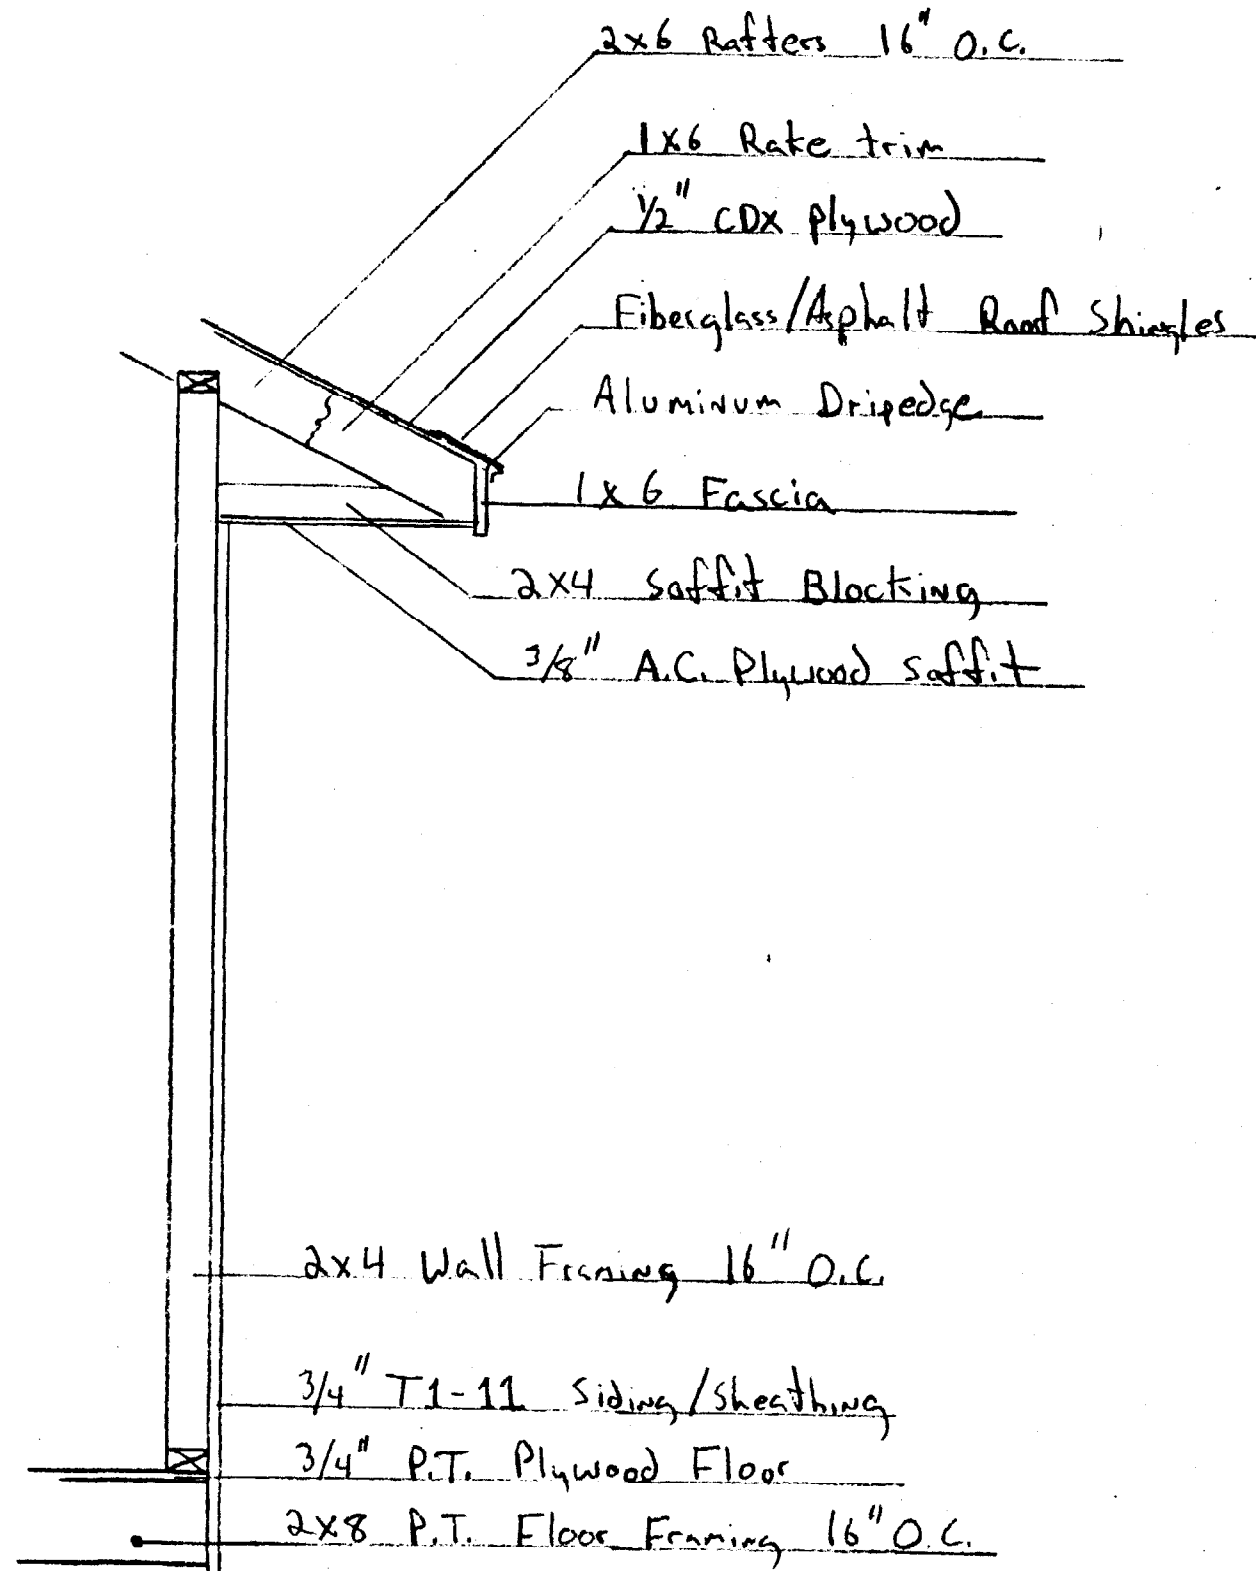 2x6 Rafters 16" O.C.
1x6 Rake trim
1/2" CDX plywood
Fiberglass/Asphalt Roof Shingles
Aluminum Dripedge
1x6 Fascia
2x4 Soffit Blocking
3/8" A.C. Plywood soffit
2x4 Wall Framing 16" O.C.
3/4" T1-11 Siding/sheathing
3/4" P.T. Plywood Floor
2x8 P.T. Floor Framing 16" O.C.